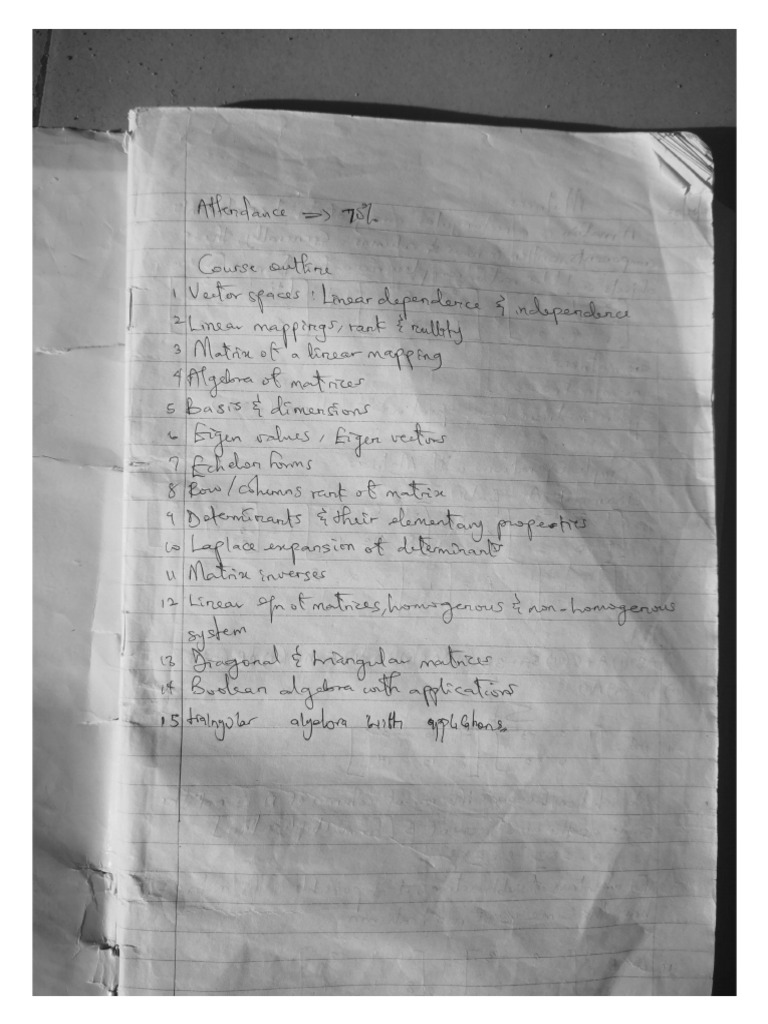 Attendance => 70%
Course outline
1 Vector spaces : Linear dependence & independence
2 Linear mappings, rank & nullity
3 Matrix of a linear mapping
4 Algebra of matrices
5 Basis & dimensions
6 Eigen values, Eigen vectors
7 Echelon forms
8 Row/columns rank of matrix
9 Determinants & their elementary properties
10 Laplace expansion of determinants
11 Matrix inverses
12 Linear eqn of matrices, homogenous & non-homogenous
system
13 Diagonal & triangular matrices
14 Boolean algebra with applications
15 algebra with applications.